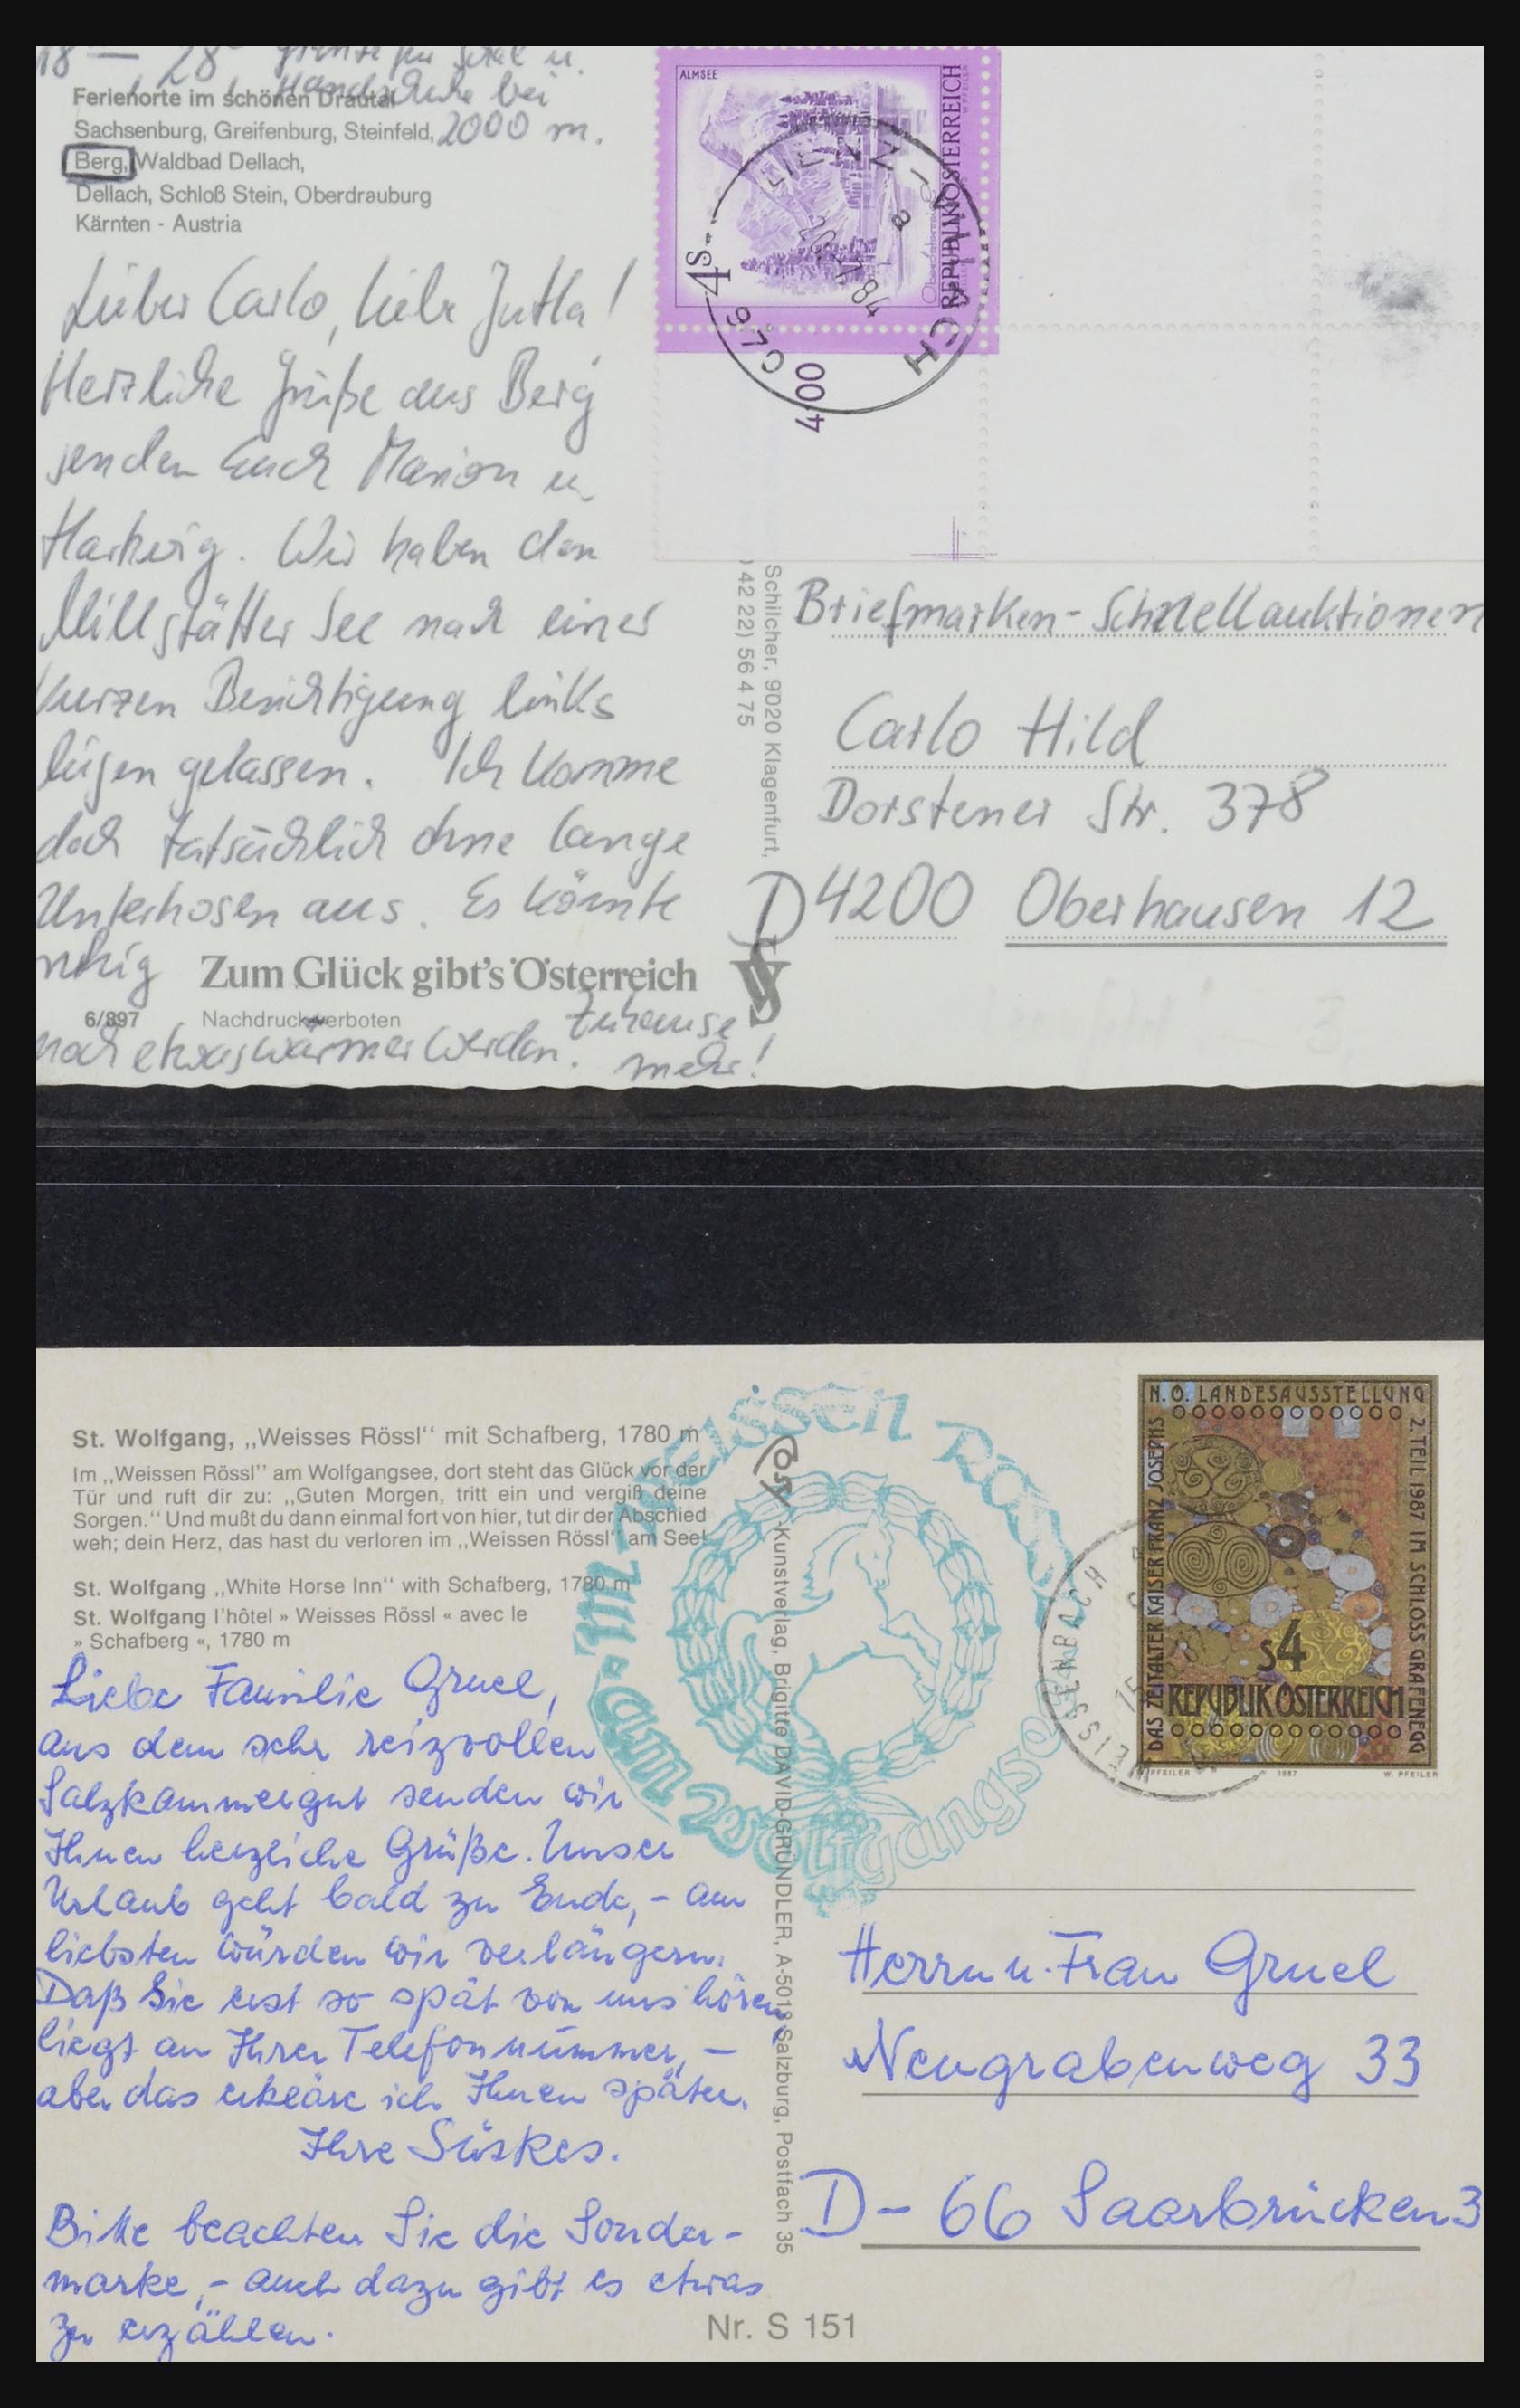 18 — 28°
Handschuhe bei
2000 m.
Ferienorte im schönen Drautal
Sachsenburg, Greifenburg, Steinfeld,
Berg, Waldbad Dellach,
Dellach, Schloß Stein, Oberdrauburg
Kärnten - Austria
Lieber Carlo, liebe Jutta!
Herzliche Grüße aus Berg
senden Euch Marion u.
Hartwig. Wir haben den
Millstätter See nach einer
kurzen Besichtigung links
liegen gelassen. Ich komme
doch tatsächlich ohne lange
Unterhosen aus. Es könnte
ruhig
noch etwas wärmer werden. Zuhause
mehr!
Zum Glück gibt's Österreich
6/897 Nachdruck verboten
Schilcher, 9020 Klagenfurt,
42 22) 56 4 75
ALMSEE
REPUBLIK ÖSTERREICH
4S
4,00
Briefmarken-Schnellauktionen
Carlo Hild
Dorstener Str. 378
D 4200 Oberhausen 12
St. Wolfgang, „Weisses Rössl“ mit Schafberg, 1780 m
Im „Weissen Rössl“ am Wolfgangsee, dort steht das Glück vor der
Tür und ruft dir zu: „Guten Morgen, tritt ein und vergiß deine
Sorgen.“ Und mußt du dann einmal fort von hier, tut dir der Abschied
weh; dein Herz, das hast du verloren im „Weissen Rössl“ am See!
St. Wolfgang „White Horse Inn“ with Schafberg, 1780 m
St. Wolfgang l'hôtel » Weisses Rössl « avec le
» Schafberg «, 1780 m
Liebe Familie Gruel,
aus dem sehr reizvollen
Salzkammergut senden wir
Ihnen herzliche Grüße. Unser
Urlaub geht bald zu Ende, – am
liebsten würden wir verlängern.
Daß Sie erst so spät von uns hören,
liegt an Ihrer Telefonnummer, –
aber das erkläre ich Ihnen später.
Ihre Süskes.
Bitte beachten Sie die Sonder-
marke, – auch dazu gibt es etwas
zu erzählen.
Im weissen Rössl am Wolfgangsee
-Kunstverlag, Brigitte DAVID-GRÜNDLER, A-5013 Salzburg, Postfach 35
Nr. S 151
N.Ö. LANDESAUSSTELLUNG
2. TEIL 1987 IM SCHLOSS GRAFENEGG
DAS ZEITALTER KAISER FRANZ JOSEPHS
S4
REPUBLIK ÖSTERREICH
PFEILER 1987 W. PFEILER
WEISSENBACH
Herrn u. Frau Gruel
Neugrabenweg 33
D – 66 Saarbrücken 3